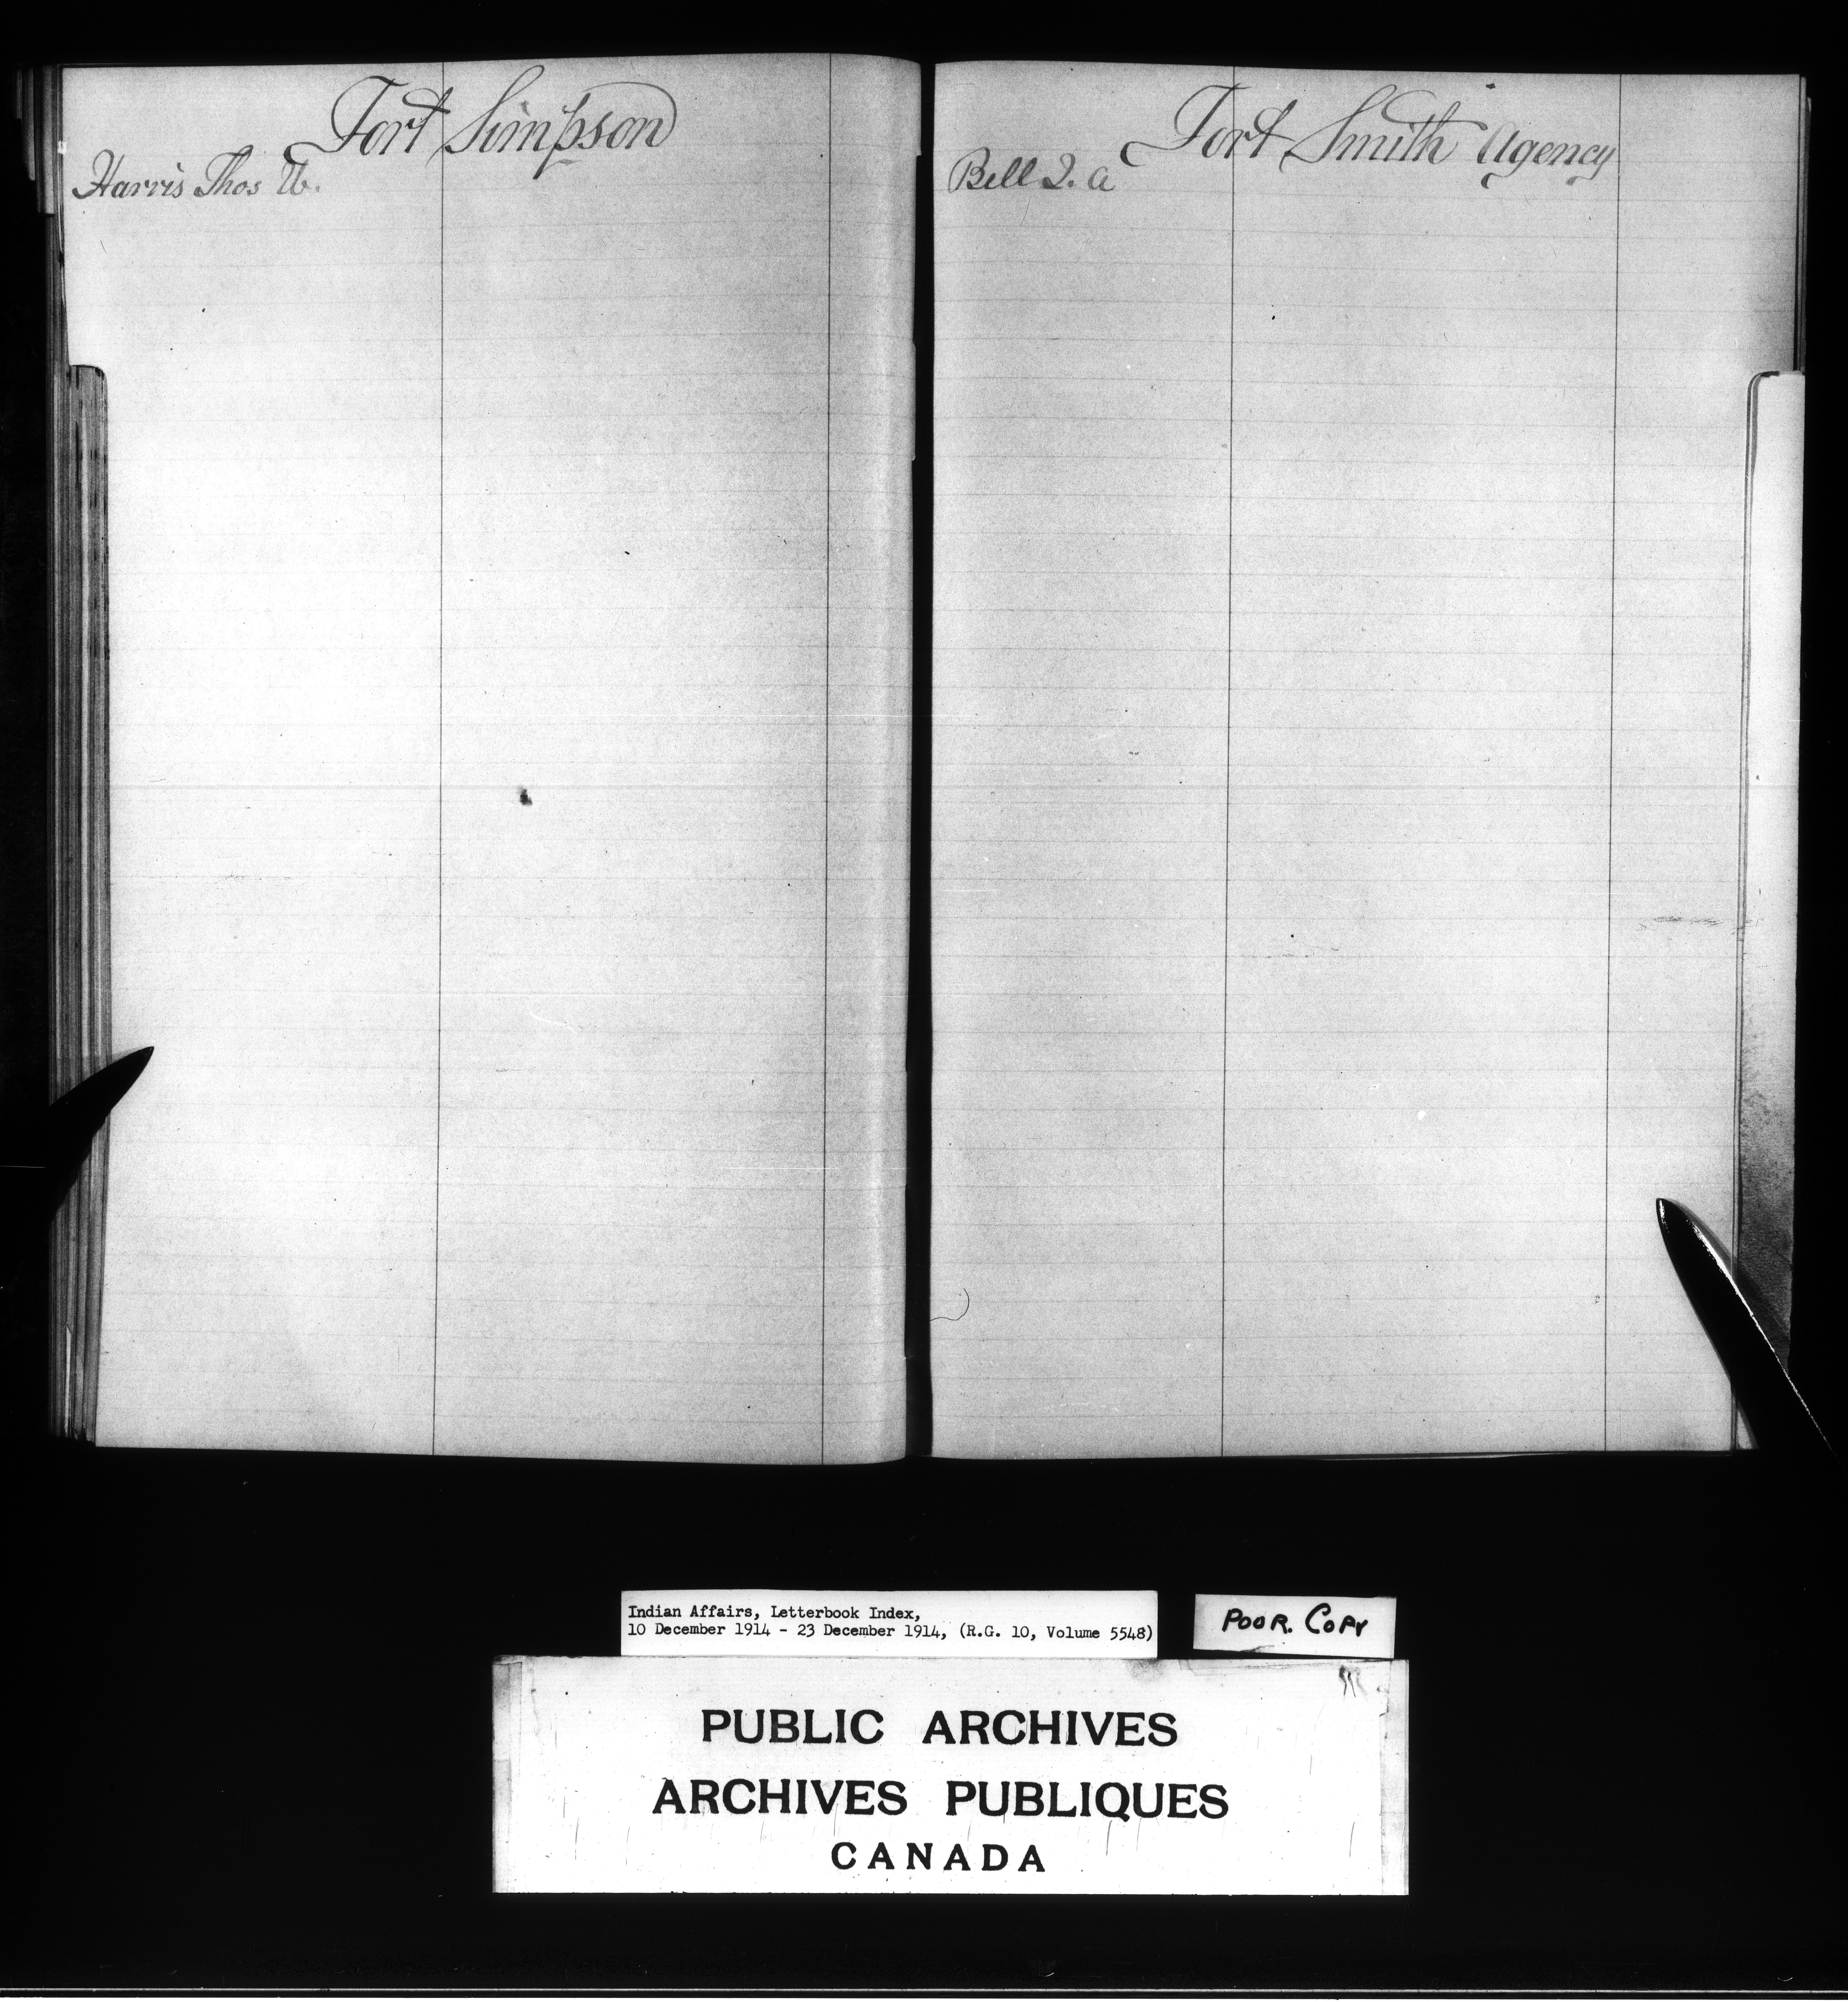 Fort Simpson
Harris Thos W.
Fort Smith Agency
Bell I. A
Indian Affairs, Letterbook Index,
10 December 1914 - 23 December 1914, (R.G. 10, Volume 5548)
POOR. COPY
PUBLIC ARCHIVES
ARCHIVES PUBLIQUES
CANADA